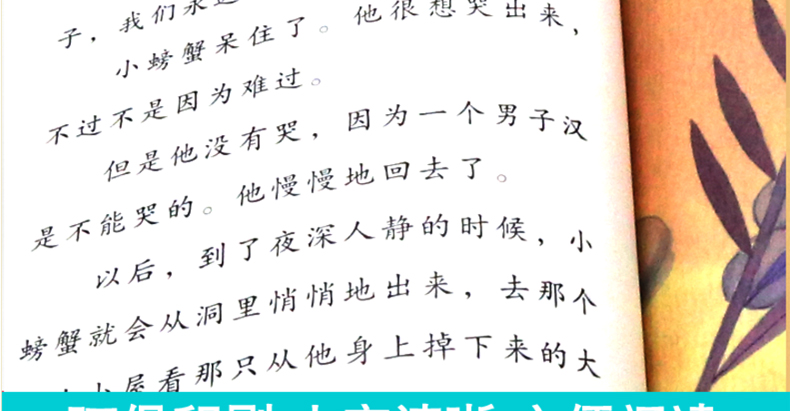 子，我们永远
小螃蟹呆住了。他很想哭出来，
不过不是因为难过。
但是他没有哭，因为一个男子汉
是不能哭的。他慢慢地回去了。
以后，到了夜深人静的时候，小
螃蟹就会从洞里悄悄地出来，去那个
小屋看那只从他身上掉下来的大